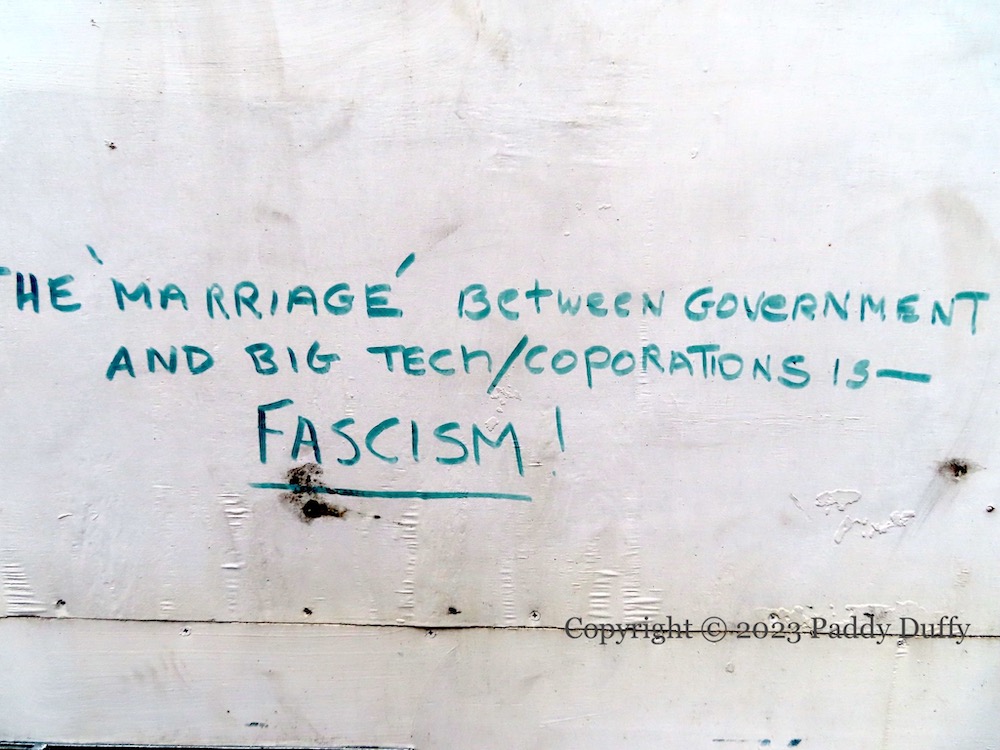 THE 'MARRIAGE' BETWEEN GOVERNMENT
AND BIG TECH/COPORATIONS IS—
FASCISM!
Copyright © 2023 Paddy Duffy